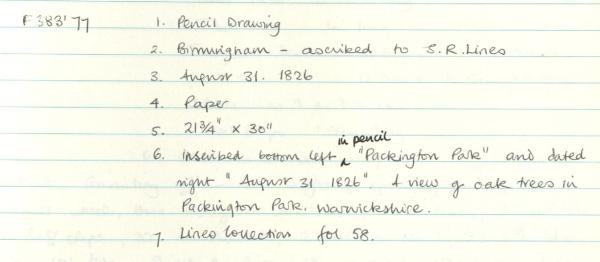 F383'77 1. Pencil Drawing
2. Birmingham - ascribed to S.R. Lines
3. August 31. 1826
4. Paper
5. 21 3/4" x 30"
6. inscribed bottom left in pencil "Packington Park" and dated
right "August 31 1826". A view of oak trees in
Packington Park, Warwickshire.
7. Lines Collection fol 58.